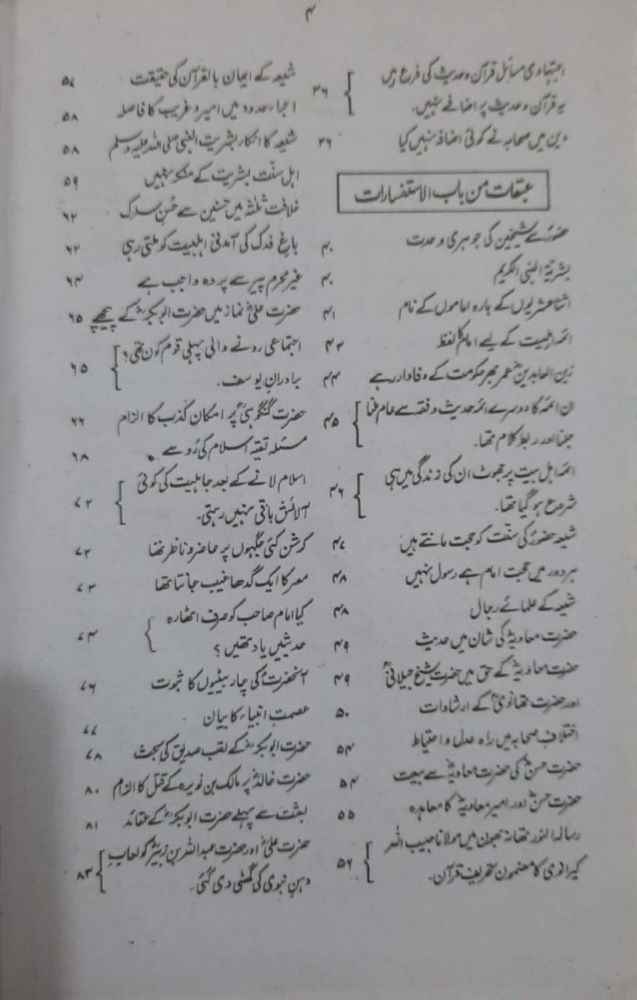 ۴
اجتہادی مسائل قرآن و حدیث کی فرع ہیں
یہ قرآن و حدیث پر اضافے نہیں۔ ۳۶
دین میں صحابہ نے کوئی اضافہ نہیں کیا ۳۶
عبقات من باب الاستفسارات
حضورؐ سے شیخین کی جوہری وحدت ۴۰
بشریۃ النبی الکریم ۴۰
اثنا عشریوں کے بارہ اماموں کے نام ۴۱
ائمہ اہلبیت کے لیے امام کا لفظ ۴۳
زین العابدینؒ عمر بھر حکومت کے وفادار رہے ۴۴
ان ائمہ کا دوسرے ائمہ حدیث و فقہ سے عام
اور ربط کلام تھا۔ ۴۵
ائمہ اہل بیت پر جھوٹ ان کی زندگی میں ہی
شروع ہو گیا تھا۔ ۴۶
شیعہ حضورؐ کی سنت کو حجت مانتے ہیں ۴۷
ہر دور میں حجت امام ہے رسول نہیں ۴۸
شیعہ کے علمائے رجال ۴۸
حضرت معاویہؓ کی شان میں حدیث ۴۹
حضرت معاویہؓ کے حق میں حضرت شیخ جیلانیؒ ۴۹
اور حضرت تھانویؒ کے ارشادات ۵۰
اختلاف صحابہ میں راہ عدل و احتیاط ۵۴
حضرت حسنؓ کی حضرت معاویہؓ سے بیعت ۵۴
حضرت حسنؓ اور امیر معاویہؓ کا معاہدہ ۵۵
رسالہ النور تھانہ بھون میں مولانا حبیب احمد
کیرانوی کا مضمون تحریف قرآن۔ ۵۶
شیعہ کے ایمان بالقرآن کی حقیقت ۵۷
اجراء حدود میں امیر و غریب کا فاصلہ ۵۸
شیعہ کا انکار بشریت النبی صلی اللہ علیہ وسلم ۵۸
اہل سنت بشریت کے منکر نہیں ۵۹
خلافت ثلثہ میں حسنین سے حُسن سلوک ۶۲
باغ فدک کی آمدنی اہلبیت کو ملتی رہی ۶۲
غیر محرم پیر سے پردہ واجب ہے ۶۴
حضرت علیؓ نماز میں حضرت ابوبکرؓ کے پیچھے ۶۵
اجتماعی رونے والی پہلی قوم کون تھی؟
برادرانِ یوسف۔ ۶۵
حضرت گنگوہیؒ پر امکان کذب کا الزام ۶۶
مسئلہ تقیہ اسلام کی رُو سے ۶۸
اسلام لانے کے بعد جاہلیت کی کوئی
آلائش باقی نہیں رہتی۔ ۷۲
کرشن کئی جگہوں پر حاضر و ناظر تھا ۷۲
مصر کا ایک گدھا غیب جانتا تھا ۷۳
کیا امام صاحب کو صرف اٹھارہ
حدیثیں یاد تھیں؟ ۷۴
آنحضرتؐ کی چار بیٹیوں کا ثبوت ۷۶
عصمت انبیاء کا بیان ۷۷
حضرت ابوبکرؓ کے لقب صدیق کی بحث ۷۸
حضرت خالدؓ پر مالک بن نویرہ کے قتل کا الزام ۸۰
بعثت سے پہلے حضرت ابوبکرؓ کے عقائد ۸۱
حضرت علیؓ اور حضرت عبداللہ بن زبیرؓ کو لعابِ
دہن نبوی کی گھٹی دی گئی۔ ۸۳